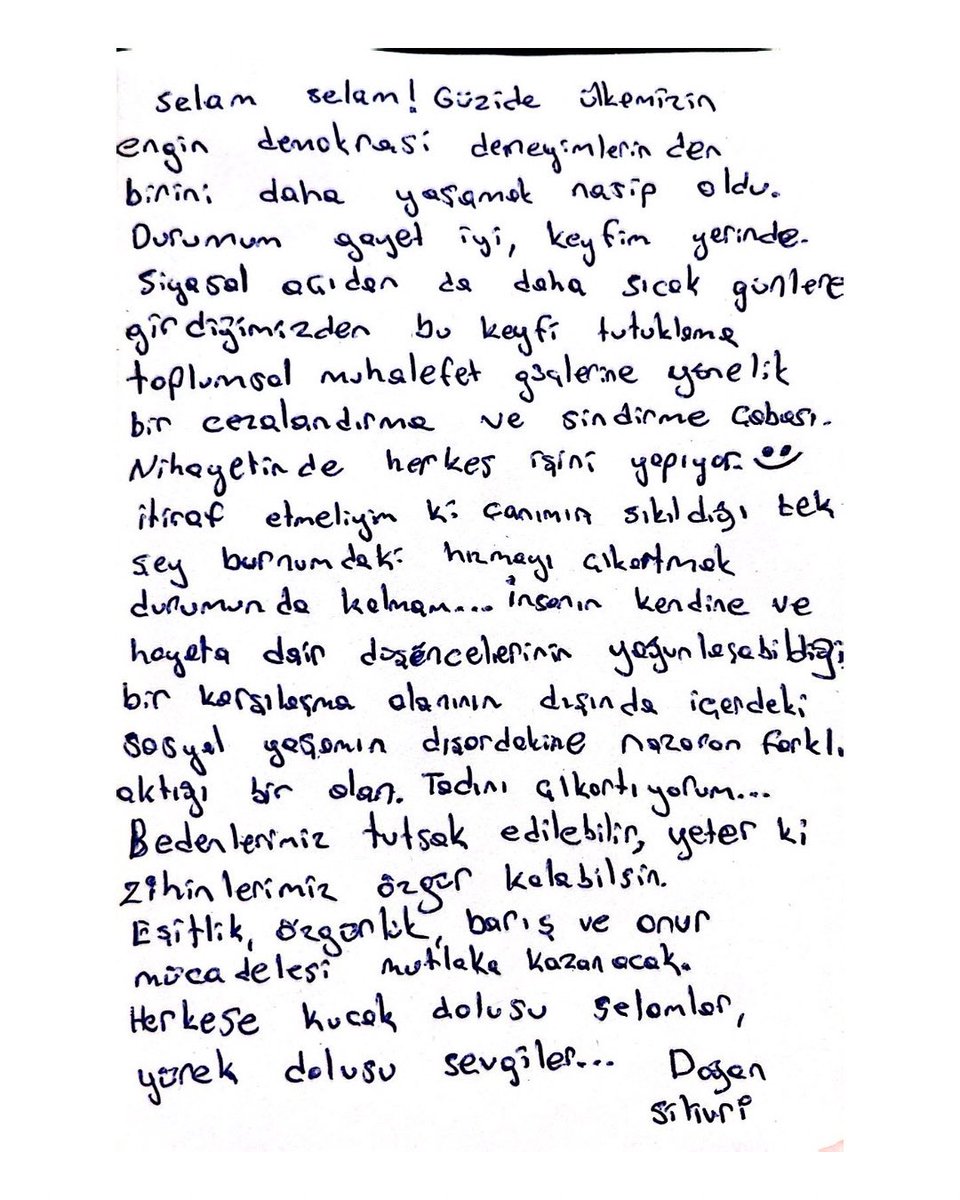 selam selam! Güzide ülkemizin
engin demokrasi deneyimlerinden
birini daha yaşamak nasip oldu.
Durumum gayet iyi, keyfim yerinde.
Siyasal açıdan da daha sıcak günlere
girdiğimizden bu keyfi tutuklama
toplumsal muhalefet güçlerine yönelik
bir cezalandırma ve sindirme çabası.
Nihayetinde herkes işini yapıyor. 🙂
itiraf etmeliyim ki canımın sıkıldığı tek
şey burnumdaki hızmayı çıkartmak
durumunda kalmam... İnsanın kendine ve
hayata dair düşüncelerinin yoğunlaşabildiği
bir karşılaşma alanının dışında içerdeki
sosyal yaşamın dışardakine nazaran farklı
aktığı bir alan. Tadını çıkartıyorum...
Bedenlerimiz tutsak edilebilir, yeter ki
zihinlerimiz özgür kalabilsin.
Eşitlik, özgürlük, barış ve onur
mücadelesi mutlaka kazanacak.
Herkese kucak dolusu selamlar,
yürek dolusu sevgiler... Doğan